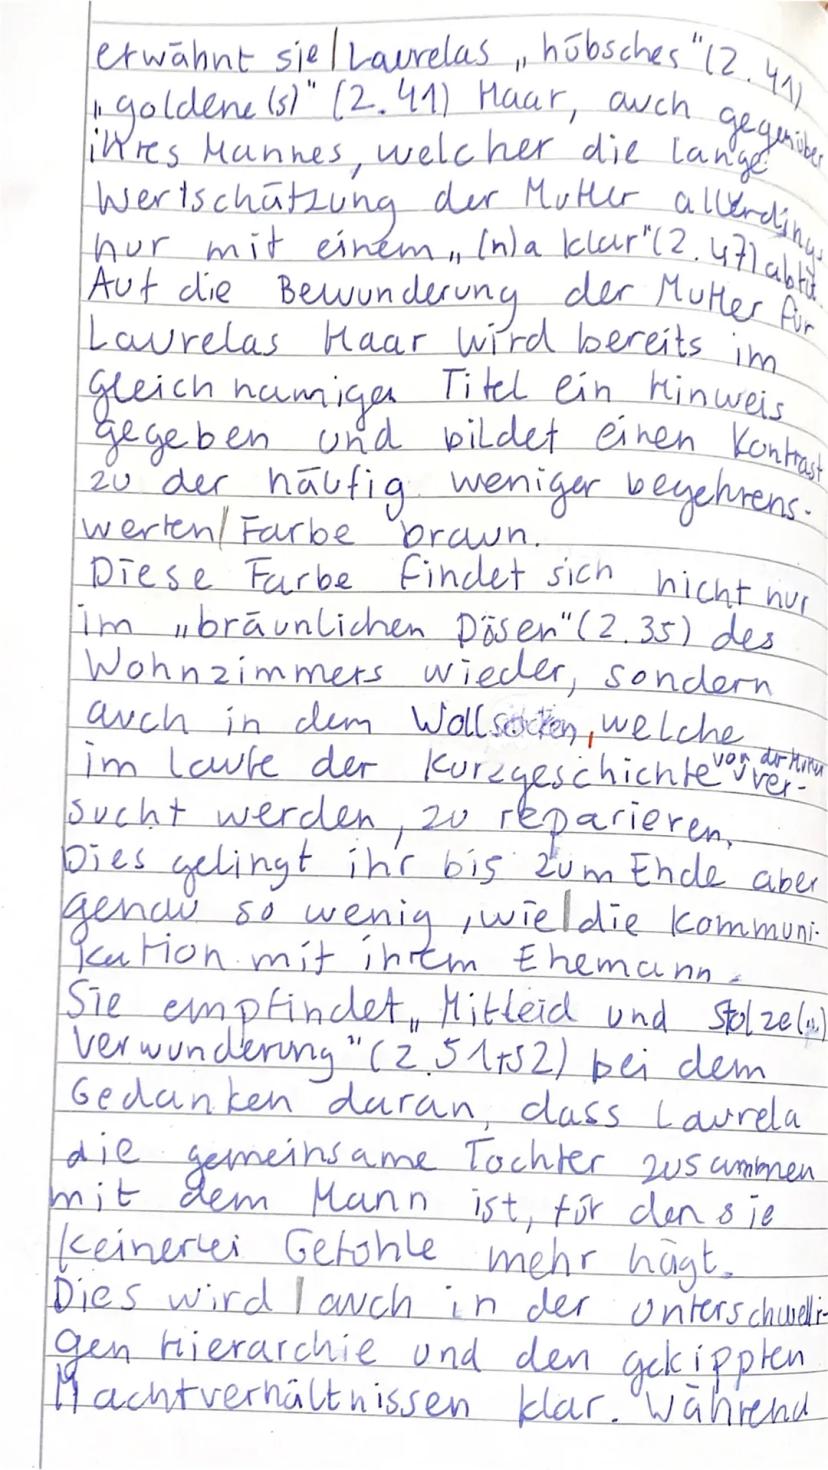 erwähnt sie Laurelas „hübsches" (Z. 41)
„goldene(s)" (Z. 41) Haar, auch gegenüber
ihres Mannes, welcher die lange
Wertschätzung der Mutter allerdings
nur mit einem „(n)a klar" (Z. 47) abtut.
Auf die Bewunderung der Mutter für
Laurelas Haar wird bereits im
gleichnamigen Titel ein Hinweis
gegeben und bildet einen Kontrast
zu der häufig weniger begehrens-
werten Farbe braun.
Diese Farbe findet sich nicht nur
im „bräunlichen Dösen" (Z. 35) des
Wohnzimmers wieder, sondern
auch in dem Wollsocken, welche
im laufe der Kurzgeschichte von der Mutter ver-
sucht werden, zu reparieren.
Dies gelingt ihr bis zum Ende aber
genau so wenig, wie die Kommuni-
kation mit ihrem Ehemann.
Sie empfindet „Mitleid und Stolze(„)
Verwunderung" (Z. 51+52) bei dem
Gedanken daran, dass Laurela
die gemeinsame Tochter zusammen
mit dem Mann ist, für den sie
keinerlei Gefühle mehr hägt.
Dies wird auch in der unterschwelli-
gen Hierarchie und den gekippten
Machtverhältnissen klar. Während